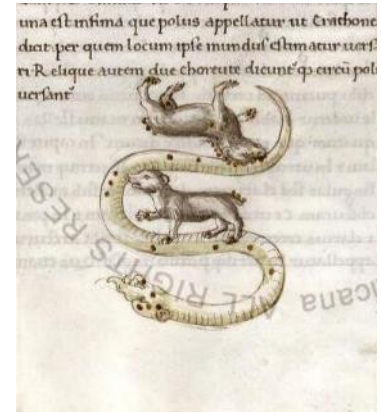 una est infima que polus appellatur ut Erathone
dicit per quem locum ipse mundus estimatur uers
ti Relique autem due choreute dicunt' qp circu pol
uersant'
ALL RIGHTS RESER
icana